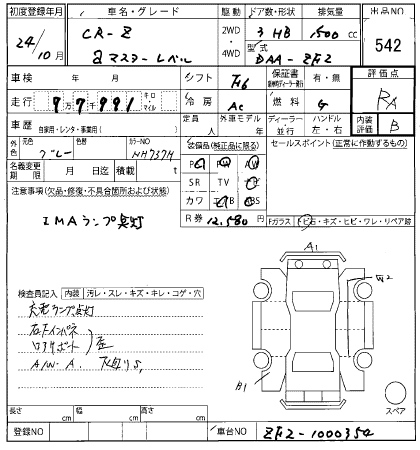 初度登録年月
24/10月
車名・グレード
CR-Z
αマスターレーベル
駆動
2WD
4WD
ドア数・形状
3 HB
排気量
1500 cc
型式
DAA-ZF2
出品NO
542
車検 年 月
シフト
F6
保証書
有・無
評価点
RA
走行
97991
キロ・マイル
冷房
AC
燃料
G
車歴
自家用・レンタ・事業用( )
定員
人
外車モデル
年
ディーラー・並行
ハンドル
左・右
内装評価
B
外色
元色
グレー
色替
カラーNO
NH737M
装備品(純正品に限る)
セールスポイント(正常に作動するもの)
名義変更期限
月 日迄
積載
t
SR TV
カワ
注意事項(欠品・修復・不具合箇所および状態)
IMAランプ点灯
R券
12,580円
Fガラス
キズ・ヒビ・ワレ・リペア跡
A1
検査員記入
内装
汚レ・スレ・キズ・キレ・コゲ・穴
充電ランプ点灯
右Fインパネ
歪
A/W・A.
下廻りS,
B1
スペア
長さ
cm
幅
cm
高さ
cm
登録NO
車台NO
ZF2-1000354